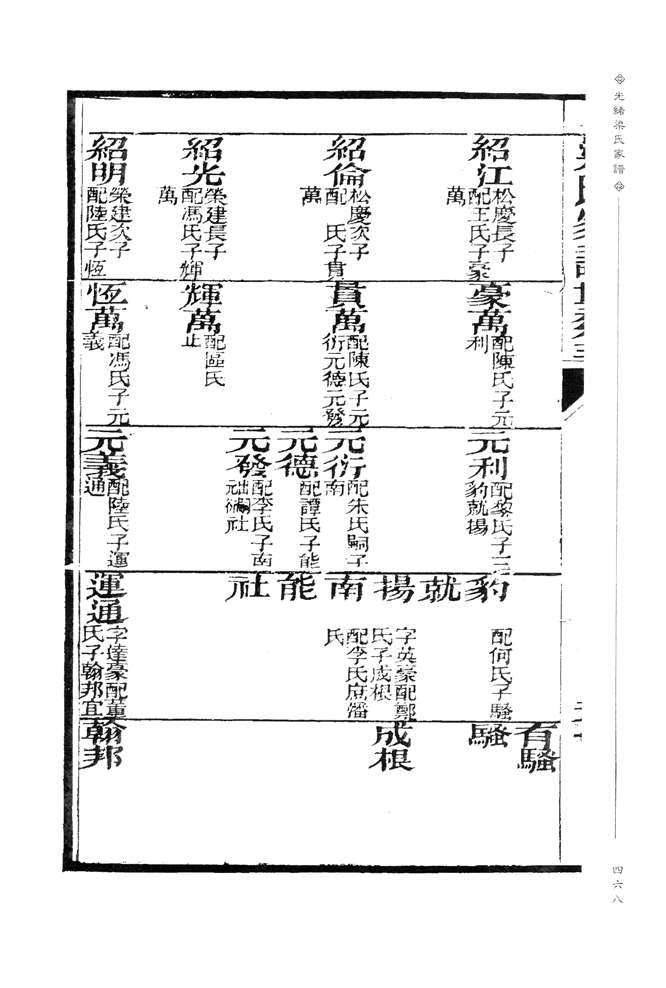 光緒梁氏家譜
四六八
紹江
松慶長子
配王氏子豪
萬
紹倫
松慶次子
配 氏子貫
萬
紹光
榮建長子
配馮氏子輝
萬
紹明
榮建次子
配陸氏子恆
萬
豪萬
配陳氏子元
利
貫萬
配陳氏子元
衍元德元發
輝萬
配區氏
止
恆萬
配馮氏子元
義
元利
配黎氏子三
豹就揚
元衍
配朱氏嗣子
南
元德
配譚氏子能
元發
配李氏子南
社
元義
配陸氏子運
通
豹
配何氏子騷
就
揚
字英豪配鄭
氏子成根
南
配李氏庶潘
氏
能
社
運通
字達豪配董
氏子翰邦宜
有騷
騷
成根
翰邦